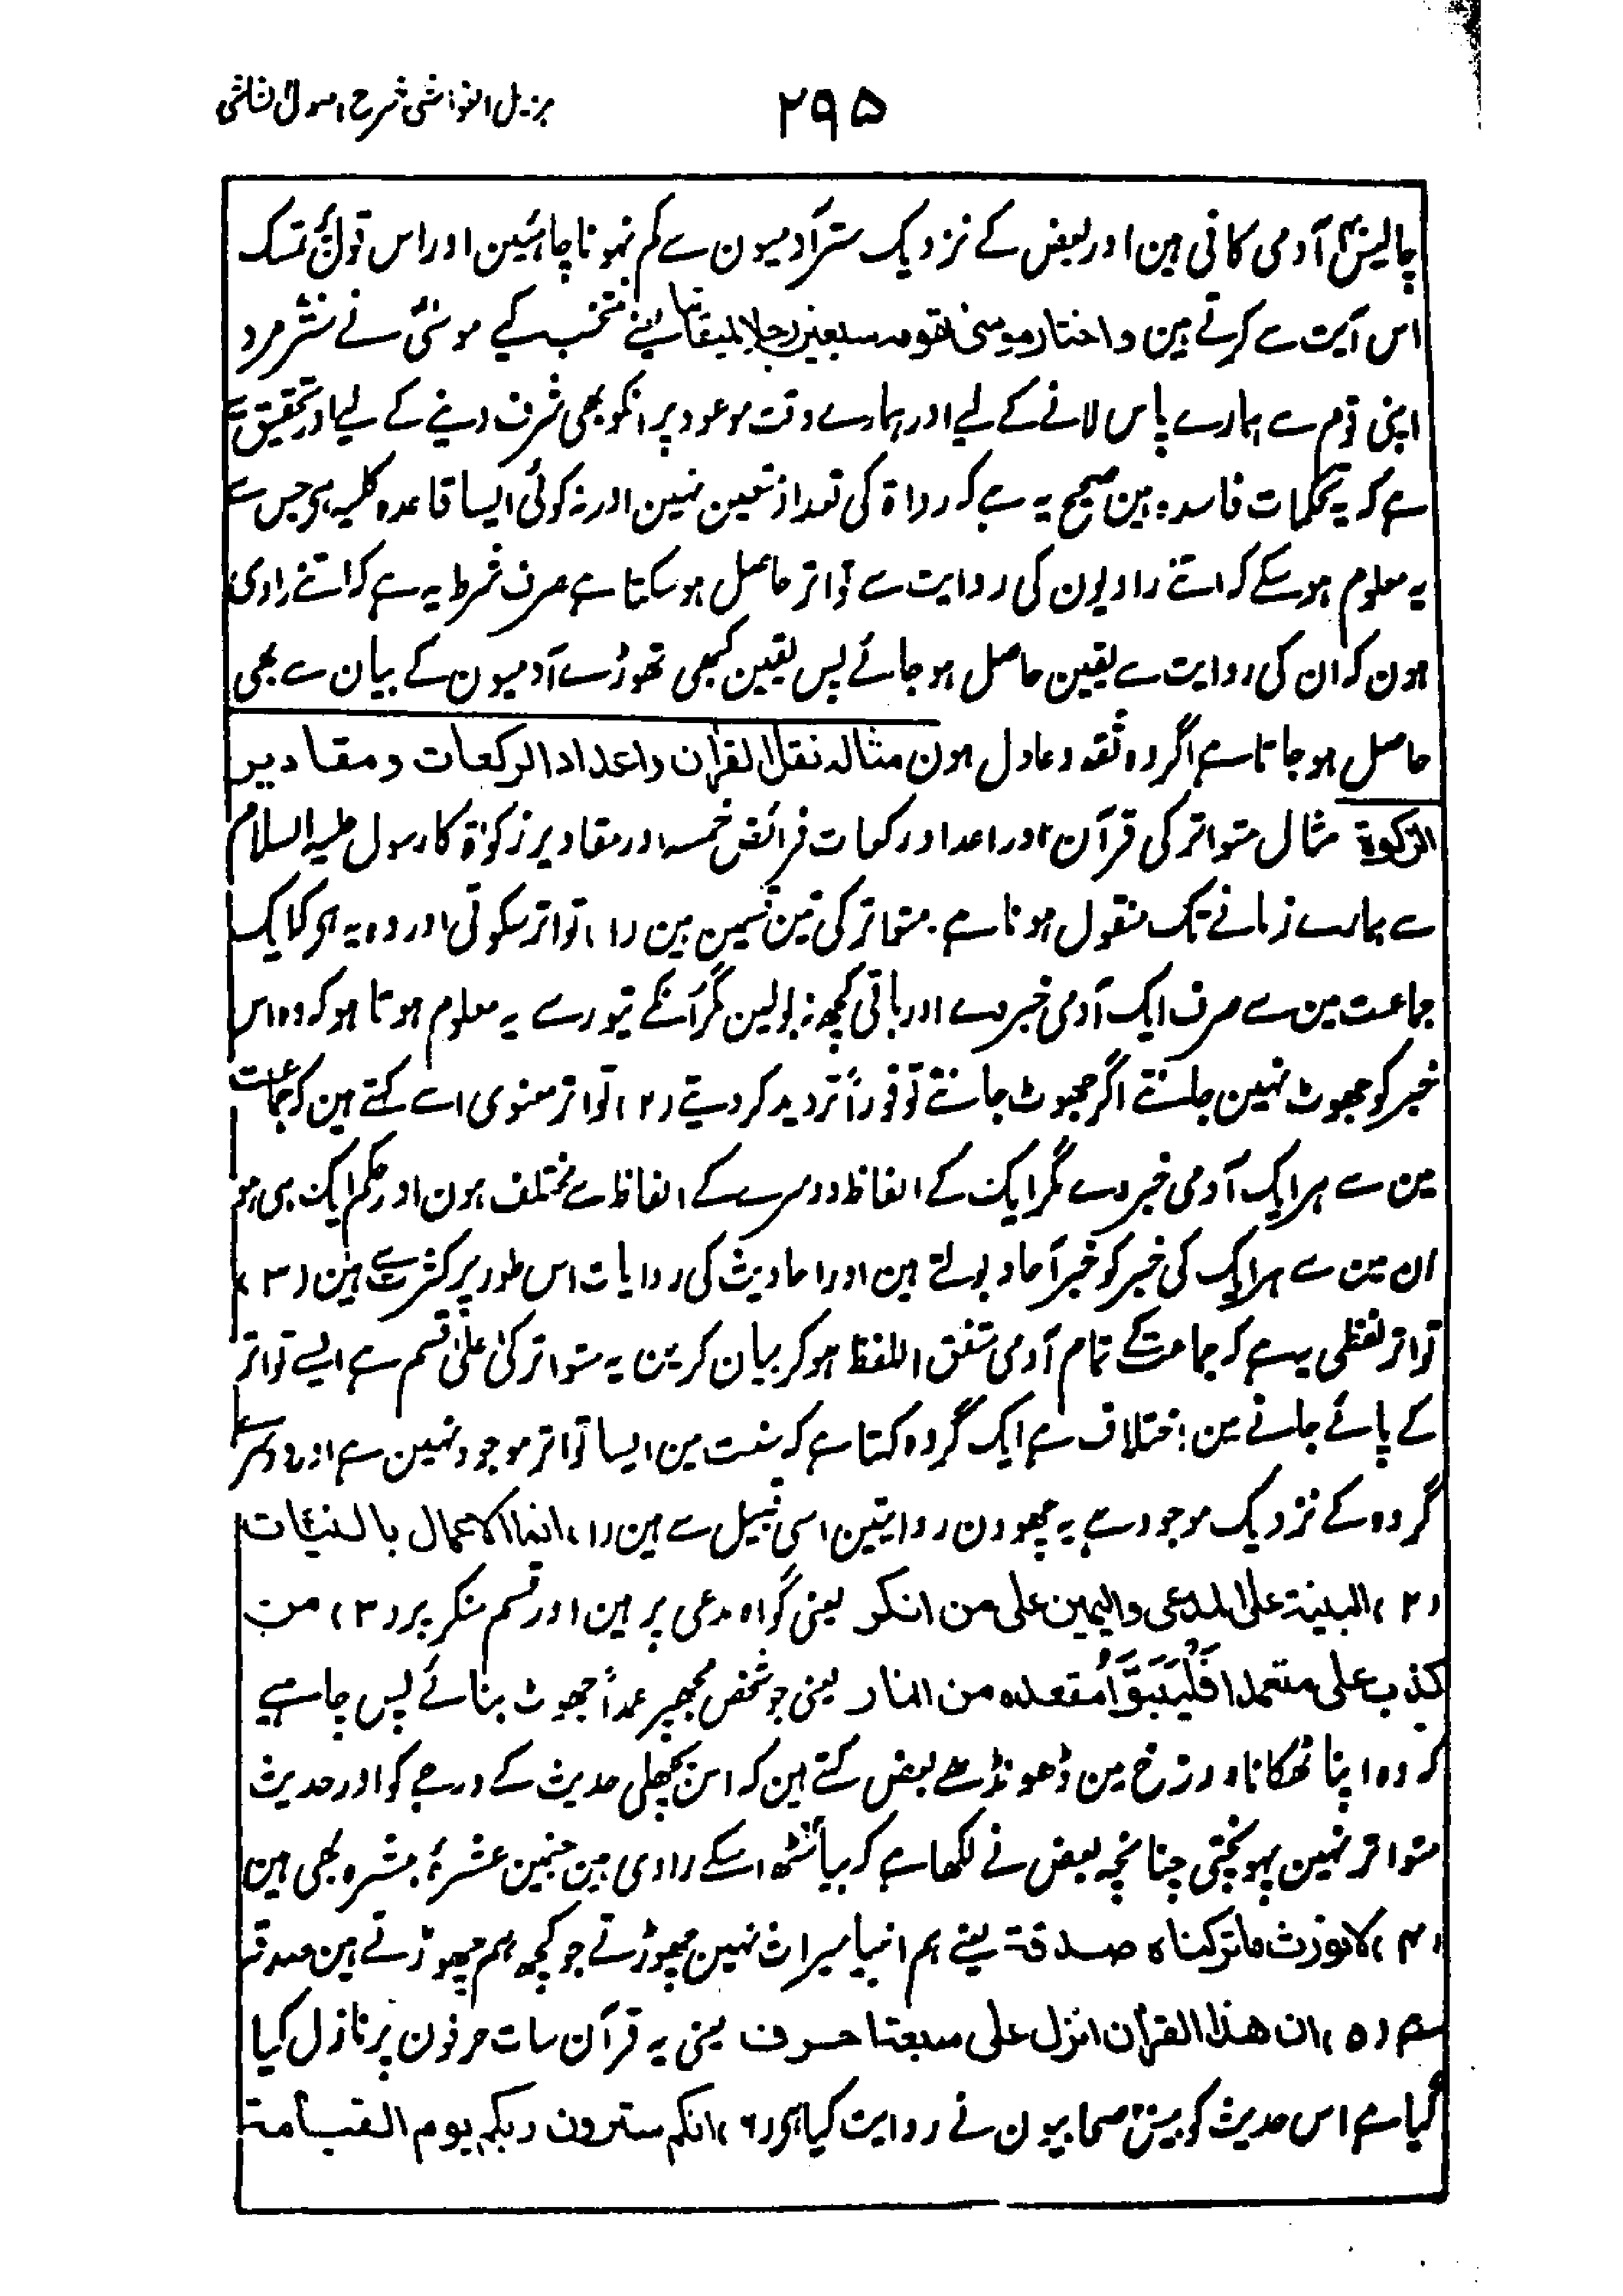 ۲۹۵
مزیل الغواشی شرح اصول شاشی
چالیس آدمی کافی ہین اور بعض کے نزدیک ستر آدمیون سے کم نہونا چاہئین اور اس قول تمسک
اس آیت سے کرتے ہین واختار موسی قومہ سبعین رجلا لمیقاتنا یعنے منتخب کیے موسیٰ نے ستر مرد
اپنی قوم سے ہمارے پاس لانے کے لیے اور ہمارے وقت موعود پر انکو بھی شرف دینے کے لیے اور تحقیق یہ
ہے کہ یہ تحکمات فاسدہ ہین صحیح یہ ہے کہ رواۃ کی تعداد متعین نہین اور نہ کوئی ایسا قاعدہ کلیہ ہی جس سے
یہ معلوم ہو سکے کہ اتنے راویون کی روایت سے تواتر حاصل ہو سکتا ہے صرف شرط یہ ہے کہ اتنے راوی
ہون کہ ان کی روایت سے یقین حاصل ہو جائے پس یقین کبھی تھوڑے آدمیون کے بیان سے بھی
حاصل ہو جاتا ہے اگر وہ ثقہ و عادل ہون مثالہ نقل القرآن واعداد الرکعات ومقادیر
الزکوۃ مثال متواتر کی قرآن اور اعداد رکعات فرائض خمسہ اور مقادیر زکوٰۃ کا رسول علیہ السلام
سے ہمارے زمانے تک منقول ہونا ہے۔ متواتر کی تین قسمین ہین (۱) تواتر سکوتی اور وہ یہ ہی کہ ایک
جماعت مین سے صرف ایک آدمی خبر دے اور باقی کچھ نہ بولین مگر انکے تیور سے یہ معلوم ہوتا ہو کہ وہ اس
خبر کو جھوٹ نہین جانتے اگر جھوٹ جانتے تو فوراً تردید کر دیتے (۲) تواتر معنوی اسے کہتے ہین کہ جماعت
مین سے ہر ایک آدمی خبر دے مگر ایک کے الفاظ دوسرے کے الفاظ سے مختلف ہون اور حکم ایک ہی ہو
ان مین سے ہر ایک کی خبر کو خبر آحاد بولتے ہین اور احادیث کی روایات اس طور پر کثرت سے ہین (۳)
تواتر لفظی یہ ہے کہ جماعت کے تمام آدمی متفق اللفظ ہو کر بیان کرین یہ متواتر کی اعلیٰ قسم ہے ایسے تواتر
کے پائے جانے مین اختلاف ہے ایک گروہ کہتا ہے کہ سنت مین ایسا تواتر موجود نہین ہے اور دوسرے
گروہ کے نزدیک موجود ہے یہ چھوون روایتین اسی قبیل سے ہین (۱) انما الاعمال بالنیات
(۲) البینۃ علی المدعی والیمین علی من انکر یعنی گواہ مدعی پر ہین اور قسم منکر پر (۳) من
کذب علی متعمدا فَلْیَتَبَوَّأ مقعدہ من النار یعنی جو شخص مجھپر عمداً جھوٹ بنائے پس چاہیے
کہ وہ اپنا ٹھکانا دوزخ مین ڈھونڈھے بعض کہتے ہین کہ اس پچھلی حدیث کے درجے کو اور حدیث
متواتر نہین پہونچتی چنانچہ بعض نے لکھا ہے کہ باسٹھ اسکے راوی ہین جنمین عشرۂ مبشرہ بھی ہین
(۴) لا نورث ما ترکناہ صدقۃ یعنے ہم انبیا میراث نہین چھوڑتے جو کچھ ہم چھوڑتے ہین صدقہ
ہے (۵) ان ھذا القرآن انزل علی سبعۃ احرف یعنی یہ قرآن سات حرفون پر نازل کیا
گیا ہے اس حدیث کو بیس صحابیون نے روایت کیا ہی (۶) انکم سترون ربکم یوم القیامۃ